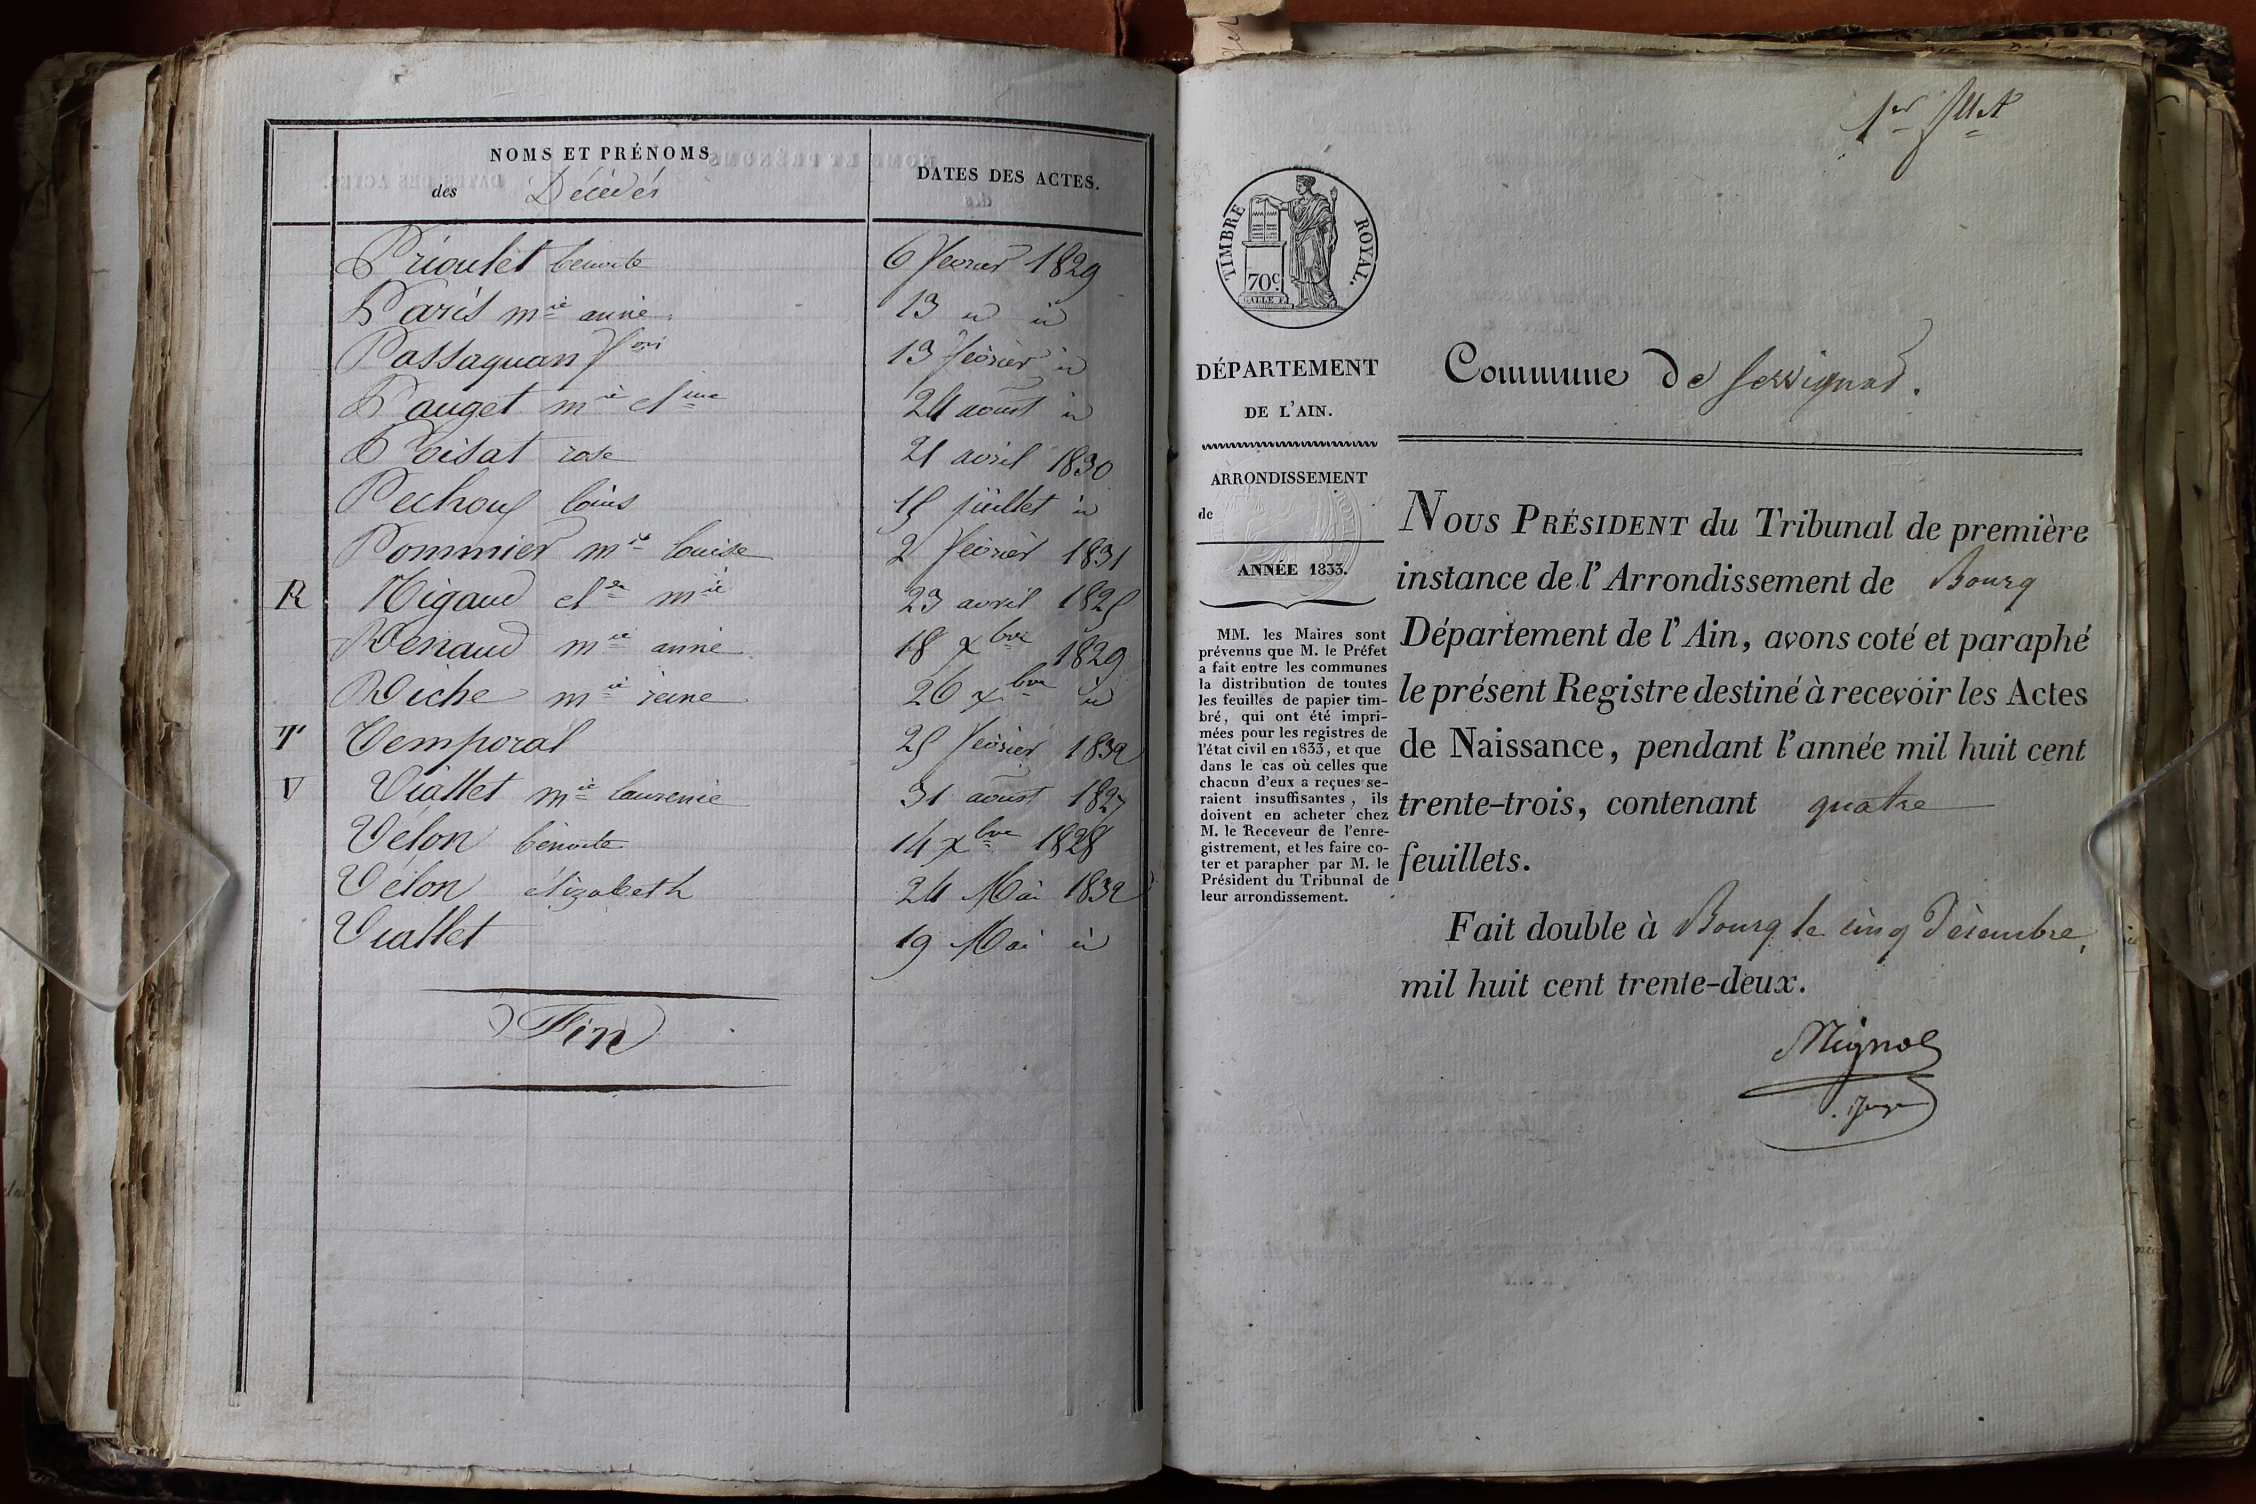 NOMS ET PRÉNOMS
des Décédés
DATES DES ACTES.
Prioulet benoite 6 févrièr 1829
Paris mie anne 13 id id
Passaquan fois 13 févrièr id
Pauget mie cline 24 aoust id
Poisat rose 21 avril 1830
Pechoux loüis 15 jüillet id
Pommier mie louise 2 févrièr 1831
R Rigaud cl mie 23 avril 1825
Renaud mie anne 18 xbre 1829
Riche mie reine 26 xbre id
T Temporal 25 févrièr 1832
V Viallet mie laurence 31 aoust 1827
Vélon bénoite 14 xbre 1828
Vélon élizabeth 24 Mai 1832
Viallet 19 Mai id
Fin
1er
TIMBRE ROYAL.
70c.
DÉPARTEMENT
DE L'AIN.
ARRONDISSEMENT
de
ANNÉE 1833.
MM. les Maires sont
prévenus que M. le Préfet
a fait entre les communes
la distribution de toutes
les feuilles de papier tim-
bré, qui ont été impri-
mées pour les registres de
l'état civil en 1833, et que
dans le cas où celles que
chacun d'eux a reçues se-
raient insuffisantes, ils
doivent en acheter chez
M. le Receveur de l'enre-
gistrement, et les faire co-
ter et parapher par M. le
Président du Tribunal de
leur arrondissement.
Commune de Servignat.
NOUS PRÉSIDENT du Tribunal de première
instance de l'Arrondissement de Bourg
Département de l'Ain, avons coté et paraphé
le présent Registre destiné à recevoir les Actes
de Naissance, pendant l'année mil huit cent
trente-trois, contenant quatre
feuillets.
Fait double à Bourg le cinq Décembre,
mil huit cent trente-deux.
Juge